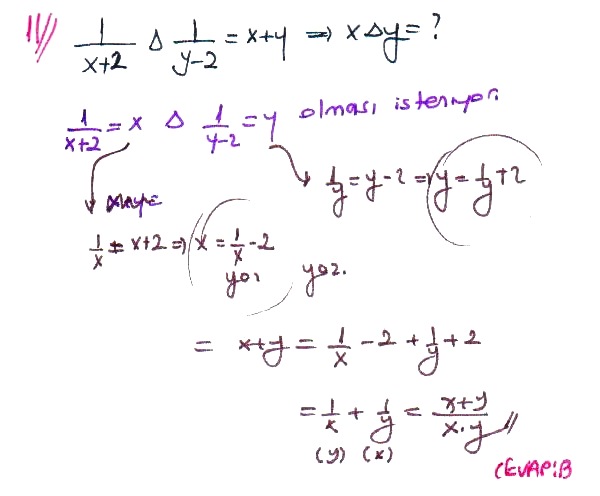 11) 1/(x+2) Δ 1/(y-2) = x+y ⇒ xΔy = ?
1/(x+2) = x Δ 1/(y-2) = y olması isteniyor.
1/y = y-2 ⇒ y = 1/y + 2
1/x = x+2 ⇒ x = 1/x - 2
yaz yaz.
= x+y = 1/x - 2 + 1/y + 2
= 1/x + 1/y = (x+y)/(x·y) //
(y) (x)
CEVAP:B